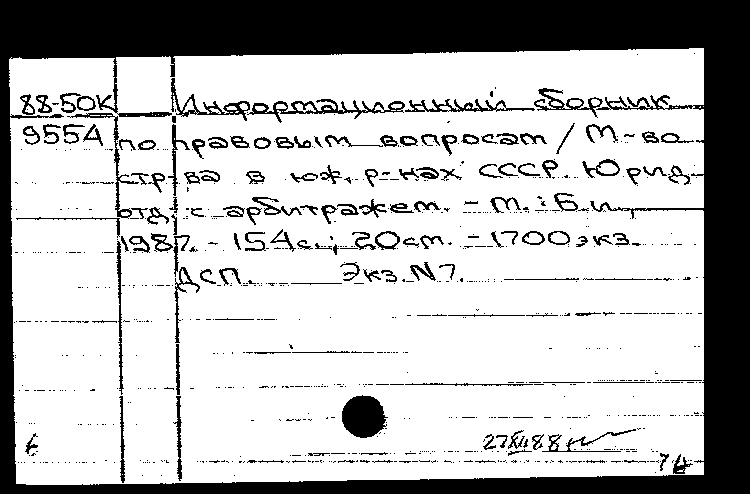 88-50К Информационный сборник
9554 по правовым вопросам / М-во
стр-ва в юж. р-нах СССР. Юрид.
отд. с арбитражем. - М. : Б.и.,
1987. - 154с. ; 20см. - 1700экз.
ДСП. Экз. N7.
27 XII 88